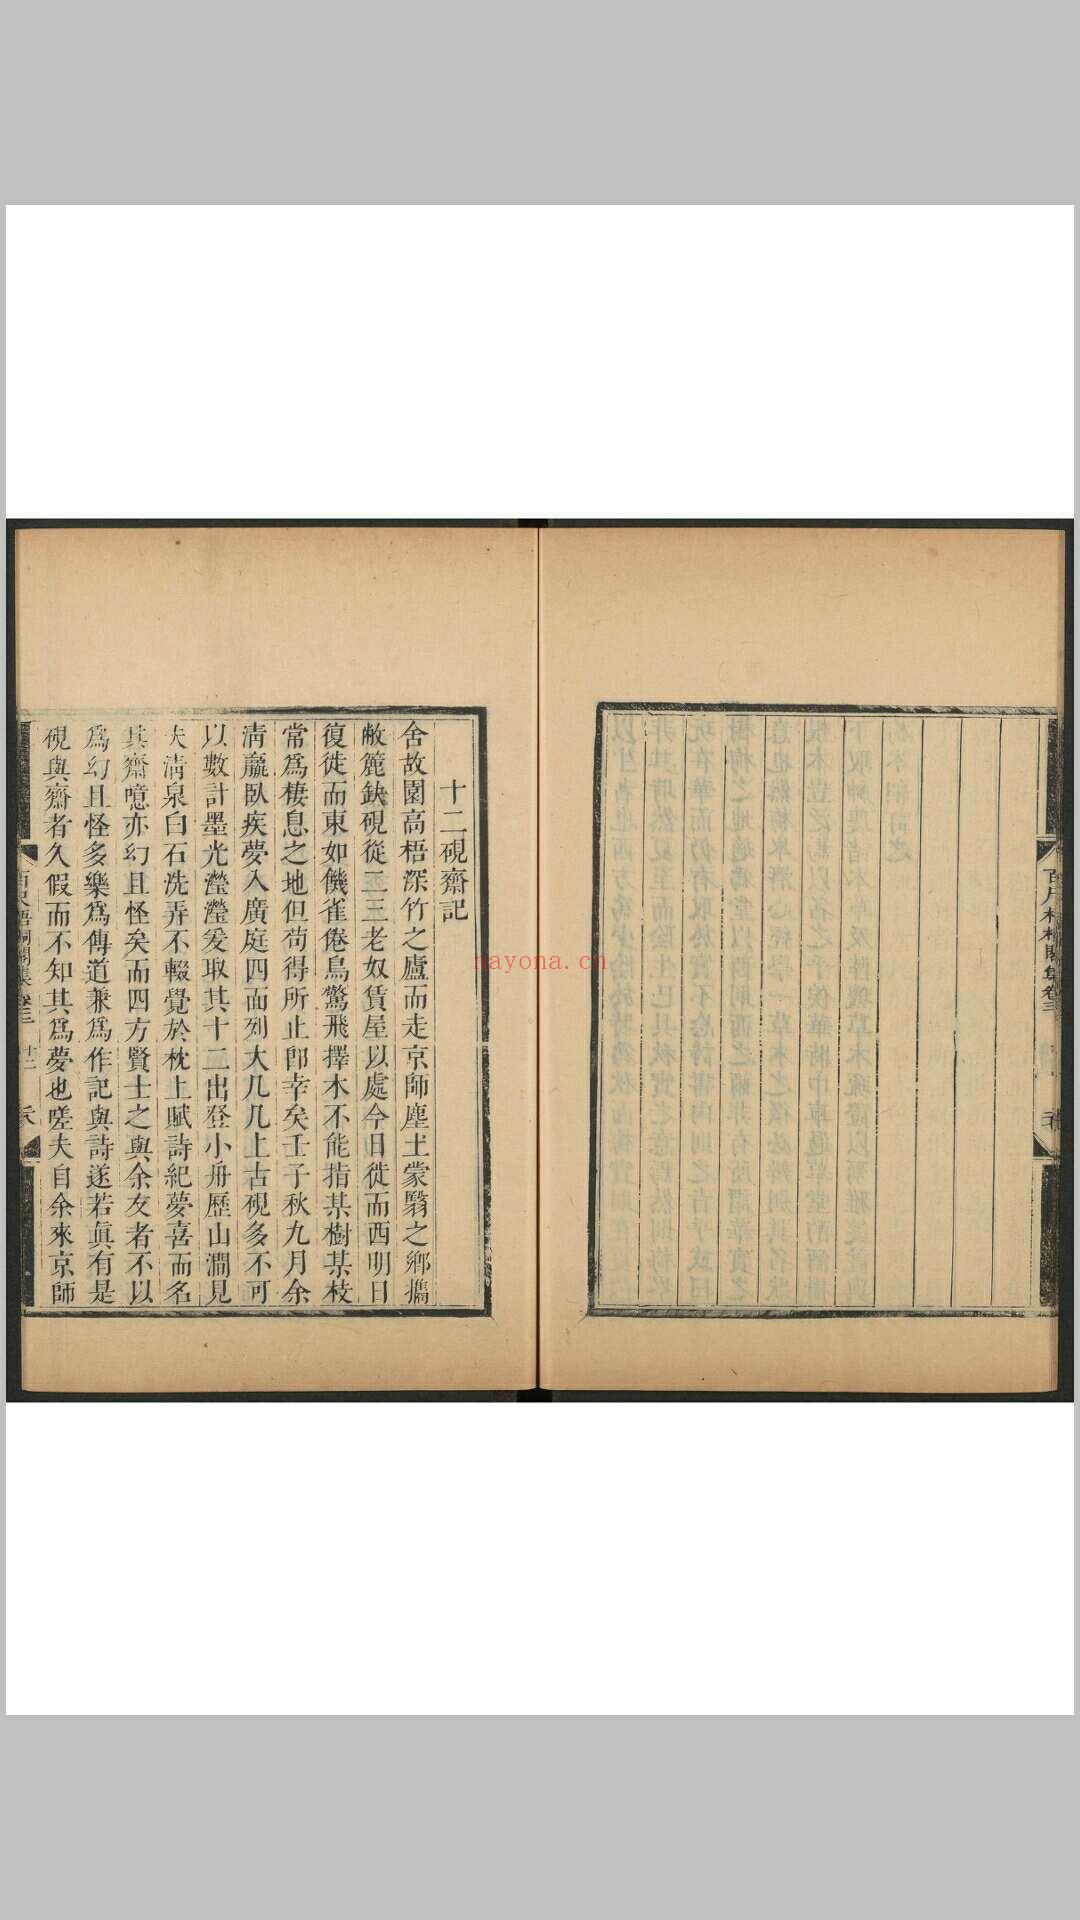 百尺梧桐閣集卷三
十二硯齋記
舍故園高梧深竹之廬而走京師塵土蒙翳之鄉攜
敝簏鈌硯從二三老奴賃屋以處今日徙而西明日
復徙而東如饑雀倦鳥驚飛擇木不能指某樹某枝
常爲棲息之地但苟得所止卽幸矣壬子秋九月余
清羸臥疾夢入廣庭四面列大几几上古硯多不可
以數計墨光瀅瀅爰取其十二出登小舟歷山澗見
夫清泉白石洗弄不輟覺於枕上賦詩紀夢喜而名
其齋噫亦幻且怪矣而四方賢士之與余友者不以
爲幻且怪多樂爲傳道兼爲作記與詩遂若眞有是
硯與齋者久假而不知其爲夢也嗟夫自余來京師
百尺梧桐閣集 卷三
nayona.cn